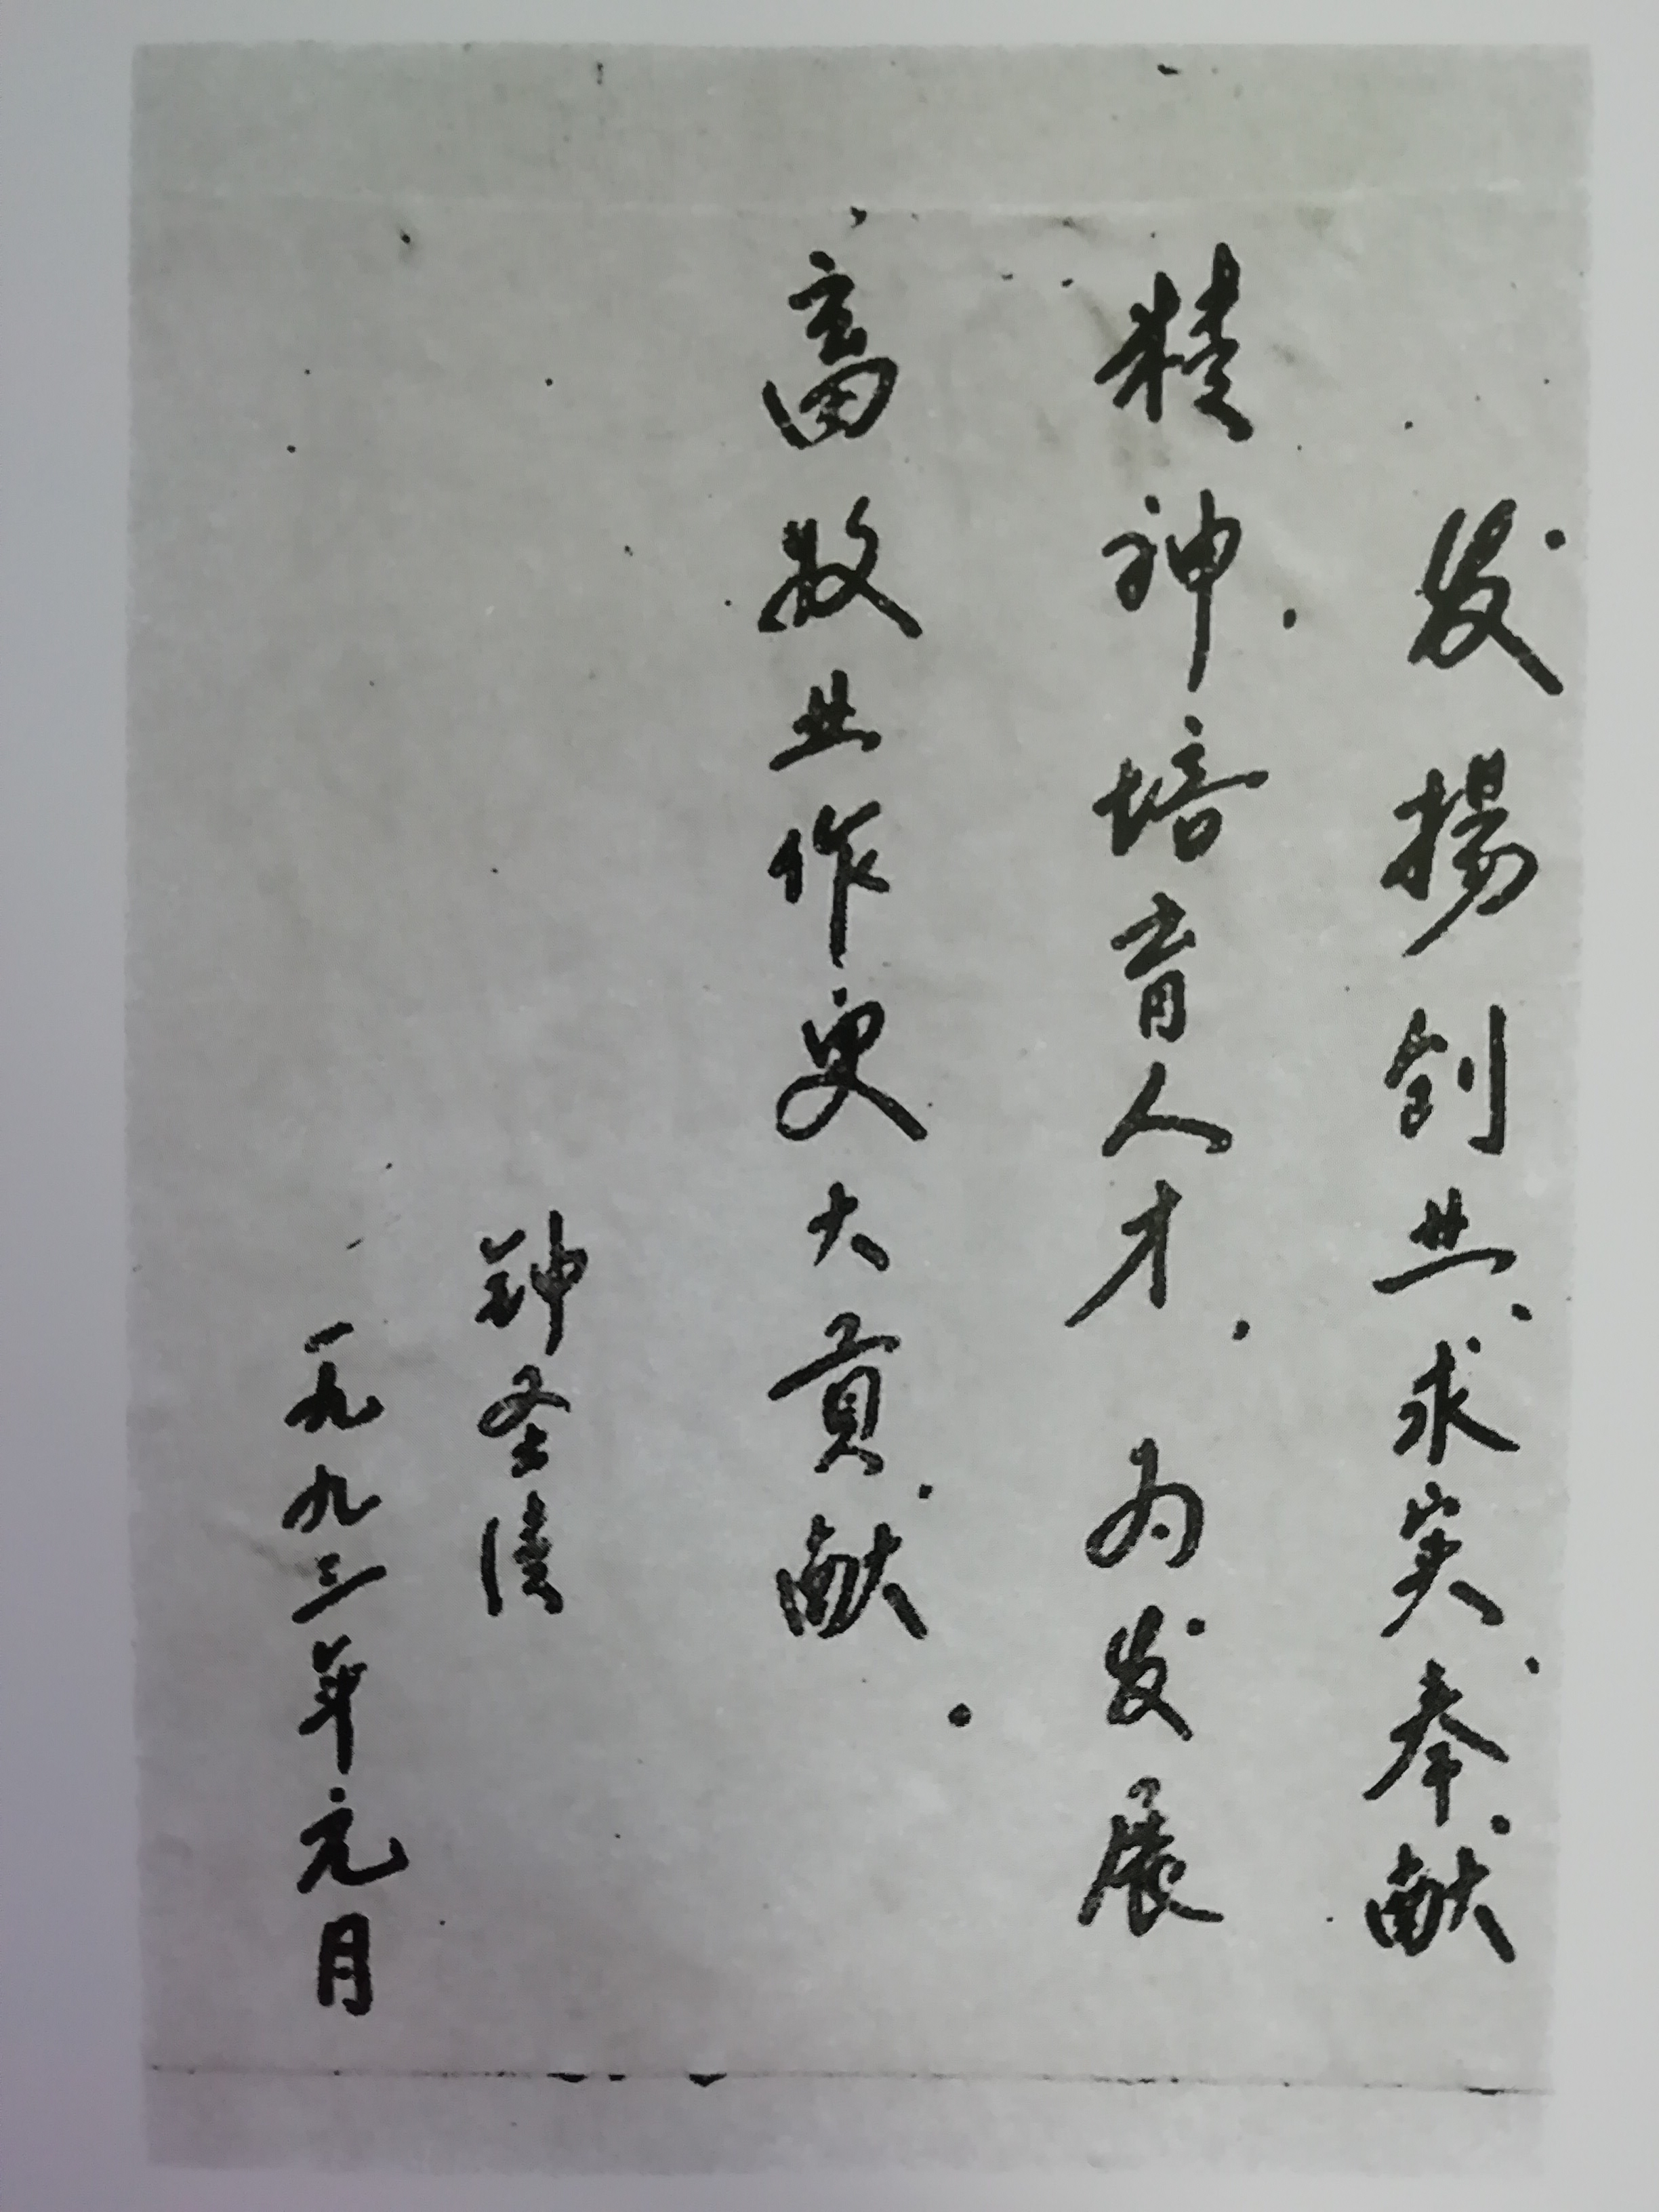 发揚创业、求实、奉献
精神，培育人才，为发展
畜牧业作更大贡献。
钟圣
一九九三年元月